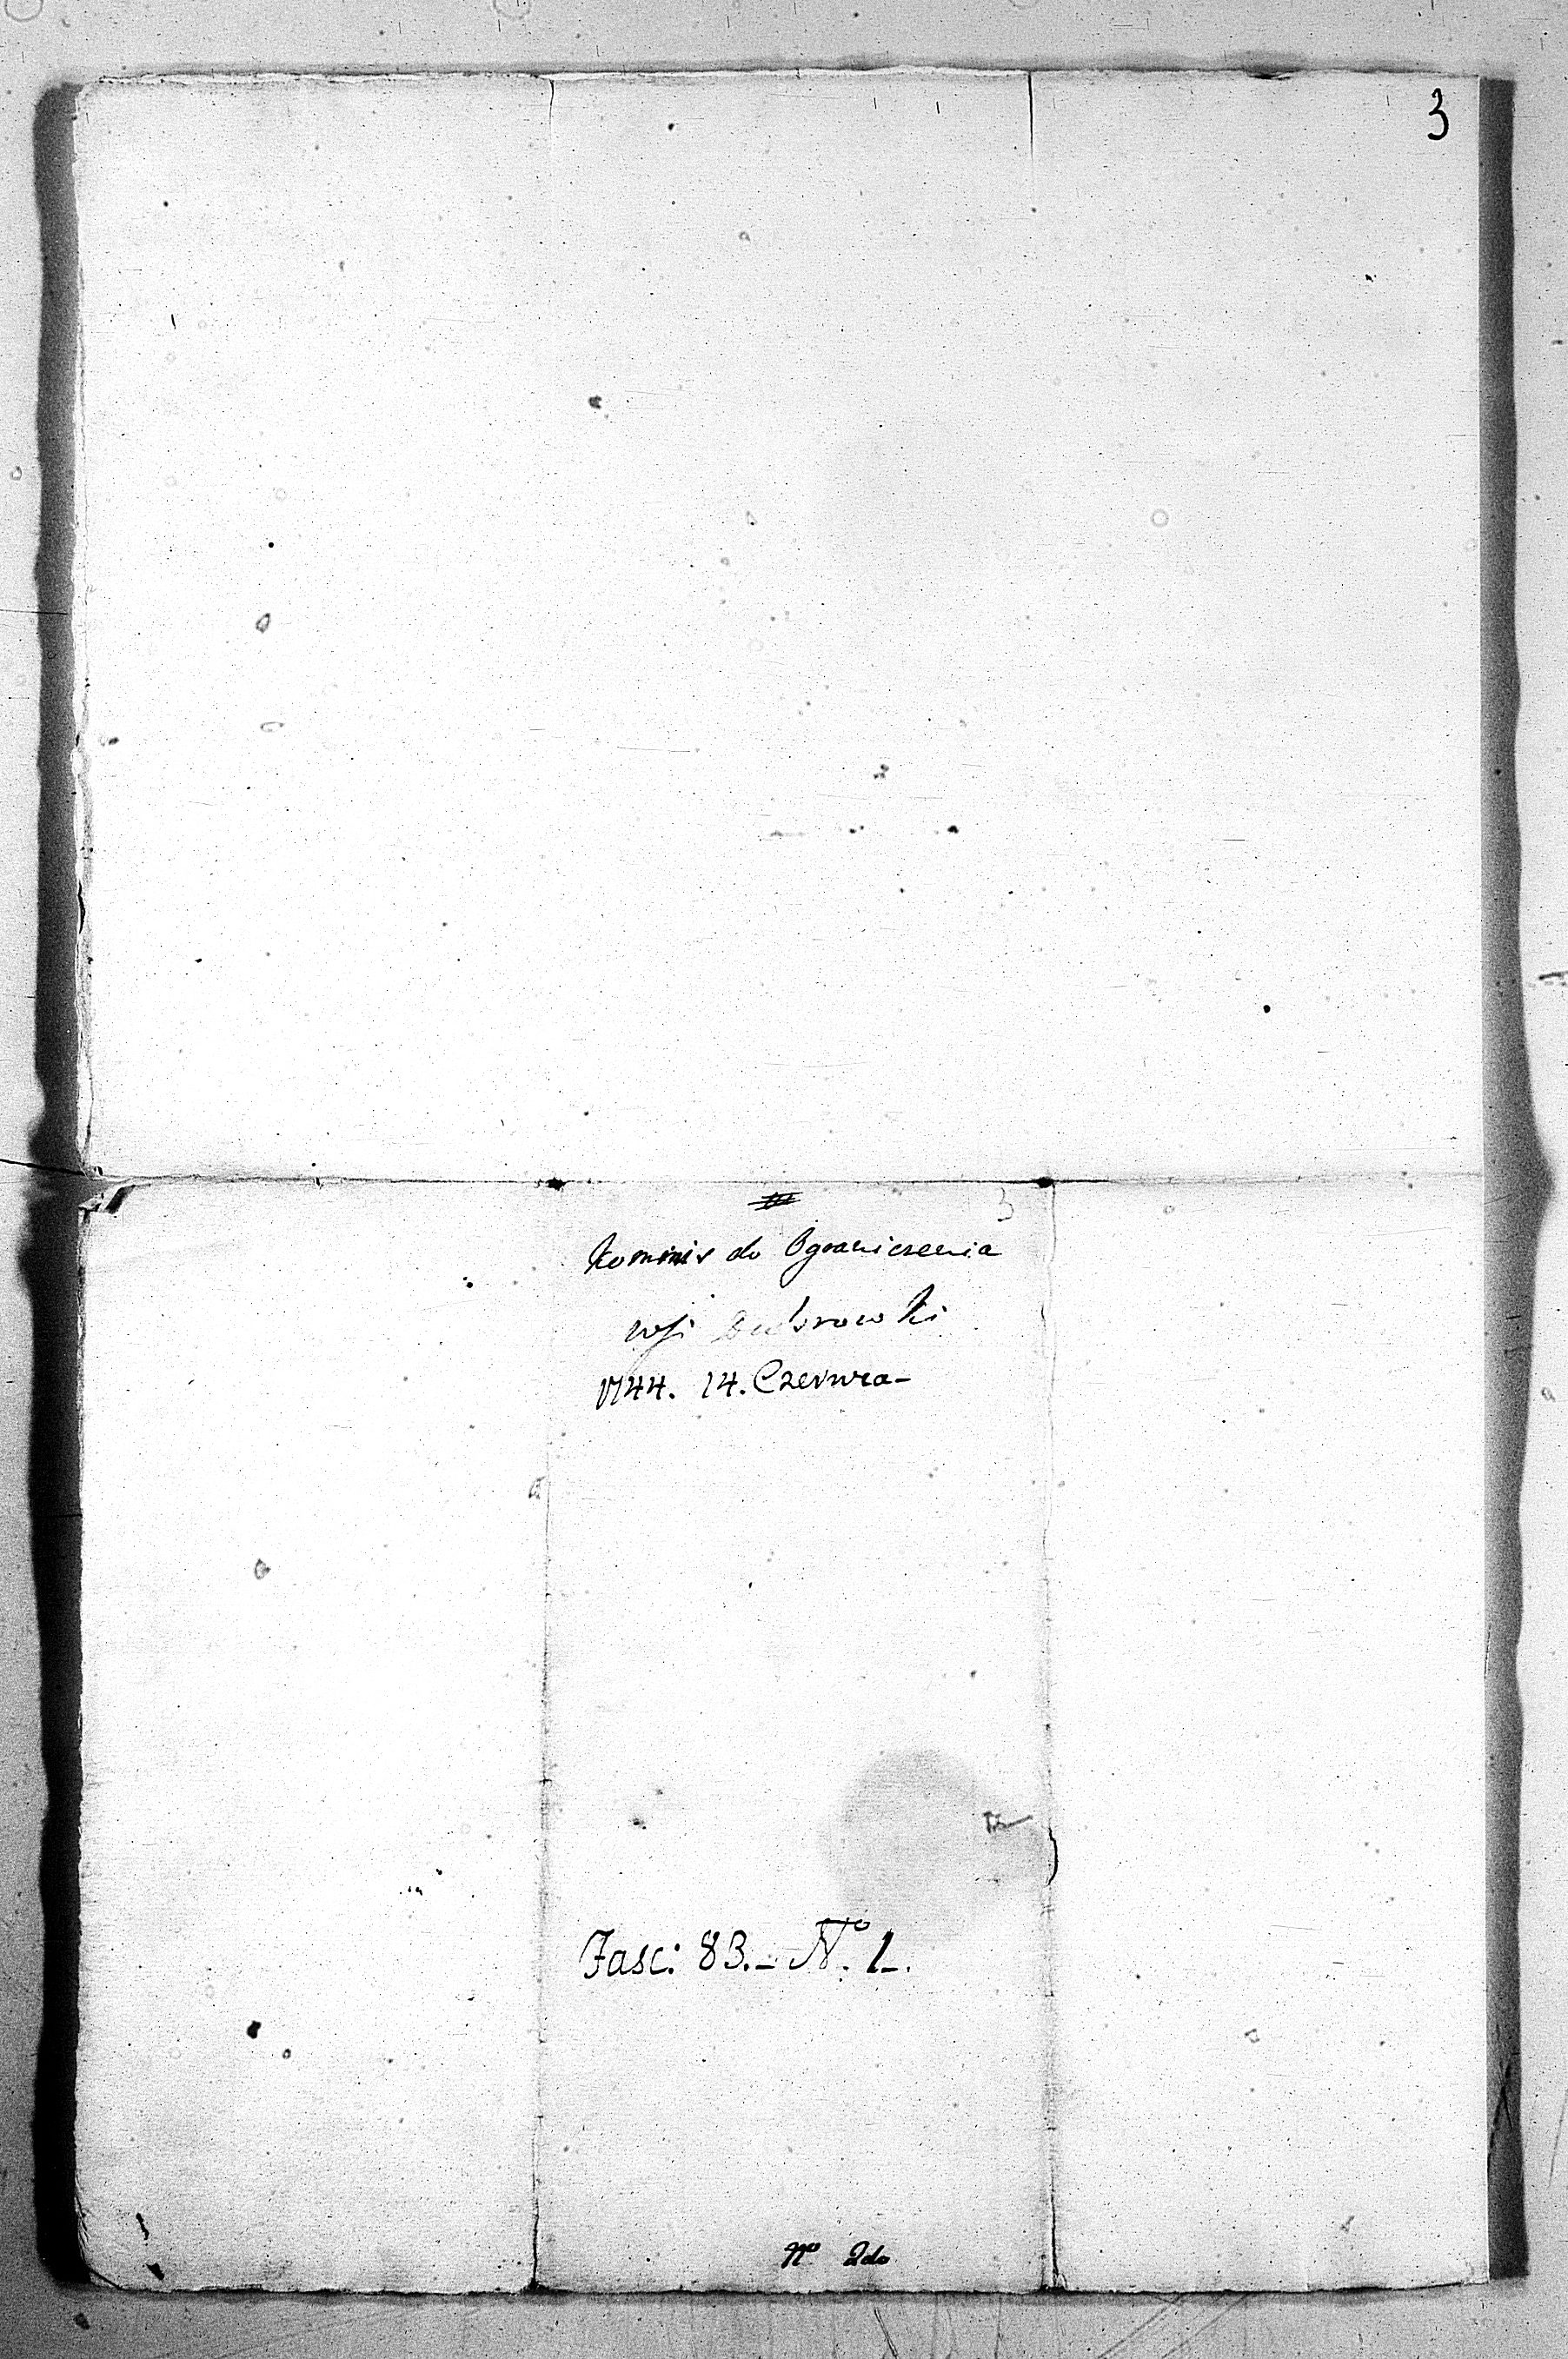 3
3
Kommis do Ograniczenia
wsi Dubrowki
1744. 14. Czerwca-
Fasc: 83.- No. 1-.
No 2do